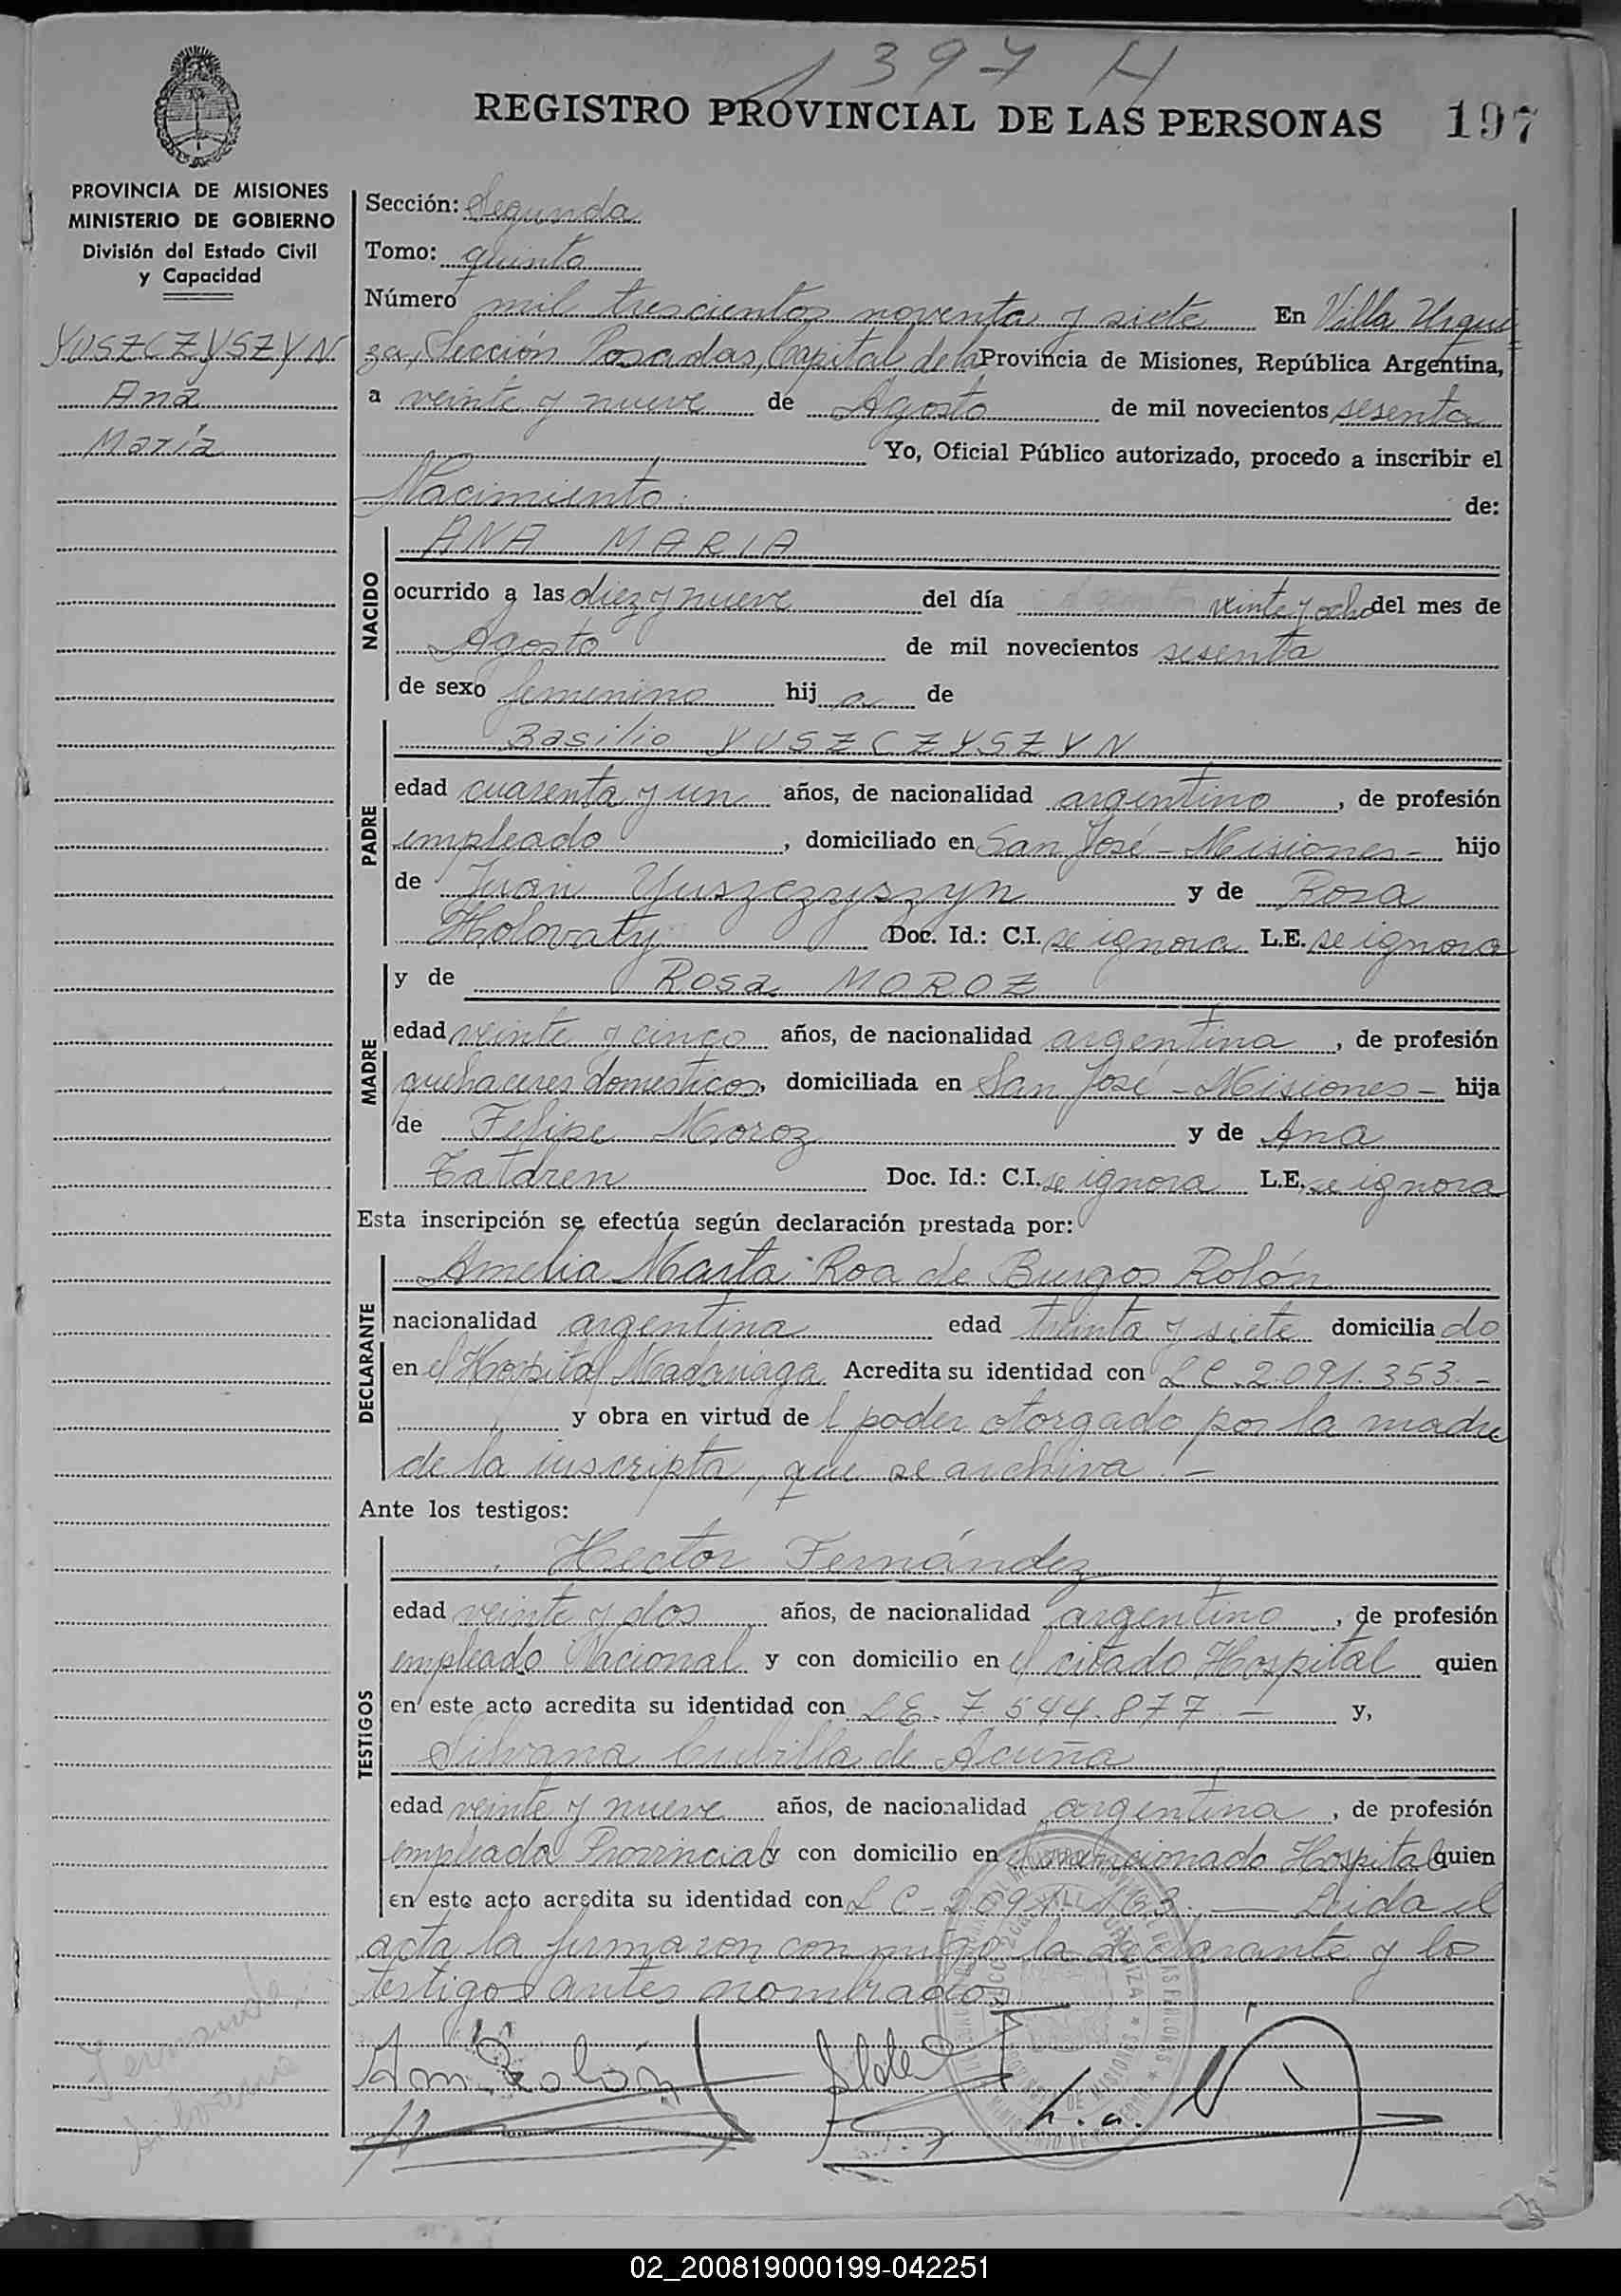 1397 H
REGISTRO PROVINCIAL DE LAS PERSONAS 197
PROVINCIA DE MISIONES
MINISTERIO DE GOBIERNO
División del Estado Civil
y Capacidad
YUSZCZYSZYN
Ana
María
Sección: Segunda
Tomo: quinto
Número mil trescientos noventa y siete En Villa Urqui
za, Sección Posadas, Capital de la Provincia de Misiones, República Argentina,
a veinte y nueve de Agosto de mil novecientos sesenta
Yo, Oficial Público autorizado, procedo a inscribir el
Nacimiento de:
NACIDO
ANA MARIA
ocurrido a las diez y nueve del día veinte y ocho del mes de
Agosto de mil novecientos sesenta
de sexo femenino hij a de
PADRE
Basilio YUSZCZYSZYN
edad cuarenta y un años, de nacionalidad argentino, de profesión
empleado, domiciliado en San José - Misiones - hijo
de Juan Yuszczyszyn y de Rosa
Holovaty Doc. Id.: C.I. se ignora L.E. se ignora
MADRE
y de Rosa MOROZ
edad veinte y cinco años, de nacionalidad argentina, de profesión
quehaceres domesticos, domiciliada en San José - Misiones - hija
de Felipe Moroz y de Ana
Tatdren Doc. Id.: C.I. se ignora L.E. se ignora
Esta inscripción se efectúa según declaración prestada por:
DECLARANTE
Amelia Marta Roa de Burgos Rolón
nacionalidad argentina edad treinta y siete domicilia do
en el Hospital Madariaga Acredita su identidad con L C 2.091.353.-
y obra en virtud de l poder otorgado por la madre
de la inscripta, que se archiva.-
Ante los testigos:
TESTIGOS
Hector Fernández
edad veinte y dos años, de nacionalidad argentino, de profesión
empleado Nacional y con domicilio en el citado Hospital quien
en este acto acredita su identidad con L E. 7.544.877.- y,
Silvana Cubilla de Acuña
edad veinte y nueve años, de nacionalidad argentina, de profesión
empleada Provincial y con domicilio en el mencionado Hospital quien
en este acto acredita su identidad con L C - Leida el
acta la firmaron conmigo la declarante y los
testigos antes nombrados
Am. Rolón
02_200819000199-042251